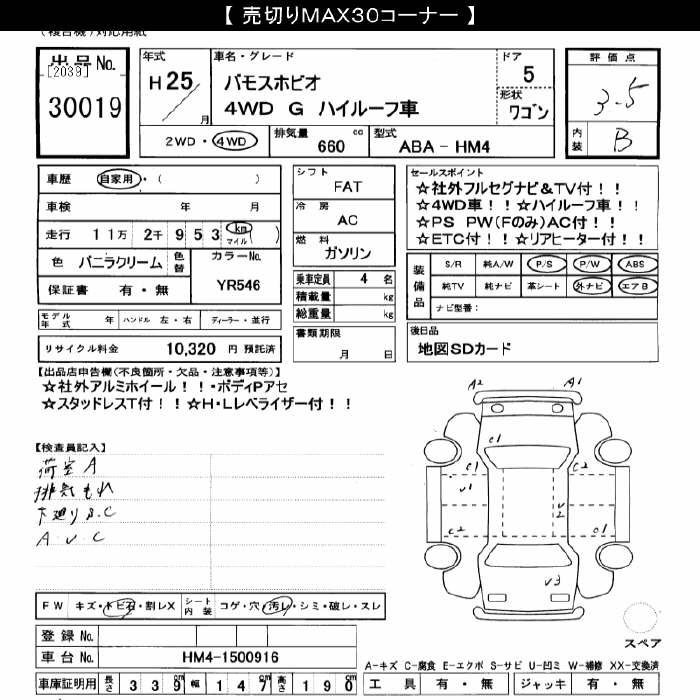 【 売切りMAX30コーナー 】
出品 No.
[2039]
30019
年式
H 25 / 月
車名・グレード
バモスホビオ
4WD G ハイルーフ車
ドア
5
形状
ワゴン
評価点
3.5
内装
B
2WD・4WD
排気量 660 cc
型式 ABA - HM4
車歴 自家用・( )
車検 年 月
走行 11万 2千 953 km マイル ( )
色 バニラクリーム 色替
カラーNo.
YR546
保証書 有・無
モデル年式 年 ハンドル 左・右 ディーラー・並行
リサイクル料金 10,320 円 預託済
シフト
FAT
冷房
AC
燃料
ガソリン
乗車定員 4 名
積載量 kg
総重量 kg
書類期限
月 日
セールスポイント
☆社外フルセグナビ&TV付!!
☆4WD車!!☆ハイルーフ車!!
☆PS PW(Fのみ)AC付!!
☆ETC付!☆リアヒーター付!!
装備品
S/R 純A/W P/S P/W ABS
純TV 純ナビ 革シート 外ナビ エアB
ナビ型番:
後日品
地図SDカード
【出品店申告欄(不良箇所・欠品・注意事項等)】
☆社外アルミホイール!!・ボディPアセ
☆スタッドレスT付!!☆H・Lレベライザー付!!
【検査員記入】
荷室 A
排気もれ
下廻り S.C
A U C
FW キズ・トビ石・割レX シート内装 コゲ・穴・汚レ・シミ・破レ・スレ
登録 No.
車台 No. HM4-1500916
車庫証明用 長さ 339 幅 147 高さ 190
A2 A1
C1 C1 C2
U1 U2
C2 C1
U3
スペア
A-キズ C-腐食 E-エクボ S-サビ U-凹ミ W-補修 XX-交換済
工具 有・無 ジャッキ 有・無